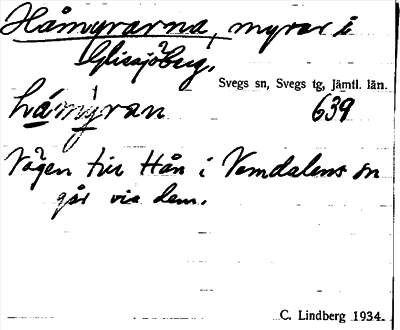 Håmyrarna, myrar i
Glissjöberg,
Svegs sn, Svegs tg, Jämtl. län.
hámỳran 639
Vägen till Hån i Vemdalens sn
går via dem.
C. Lindberg 1934.